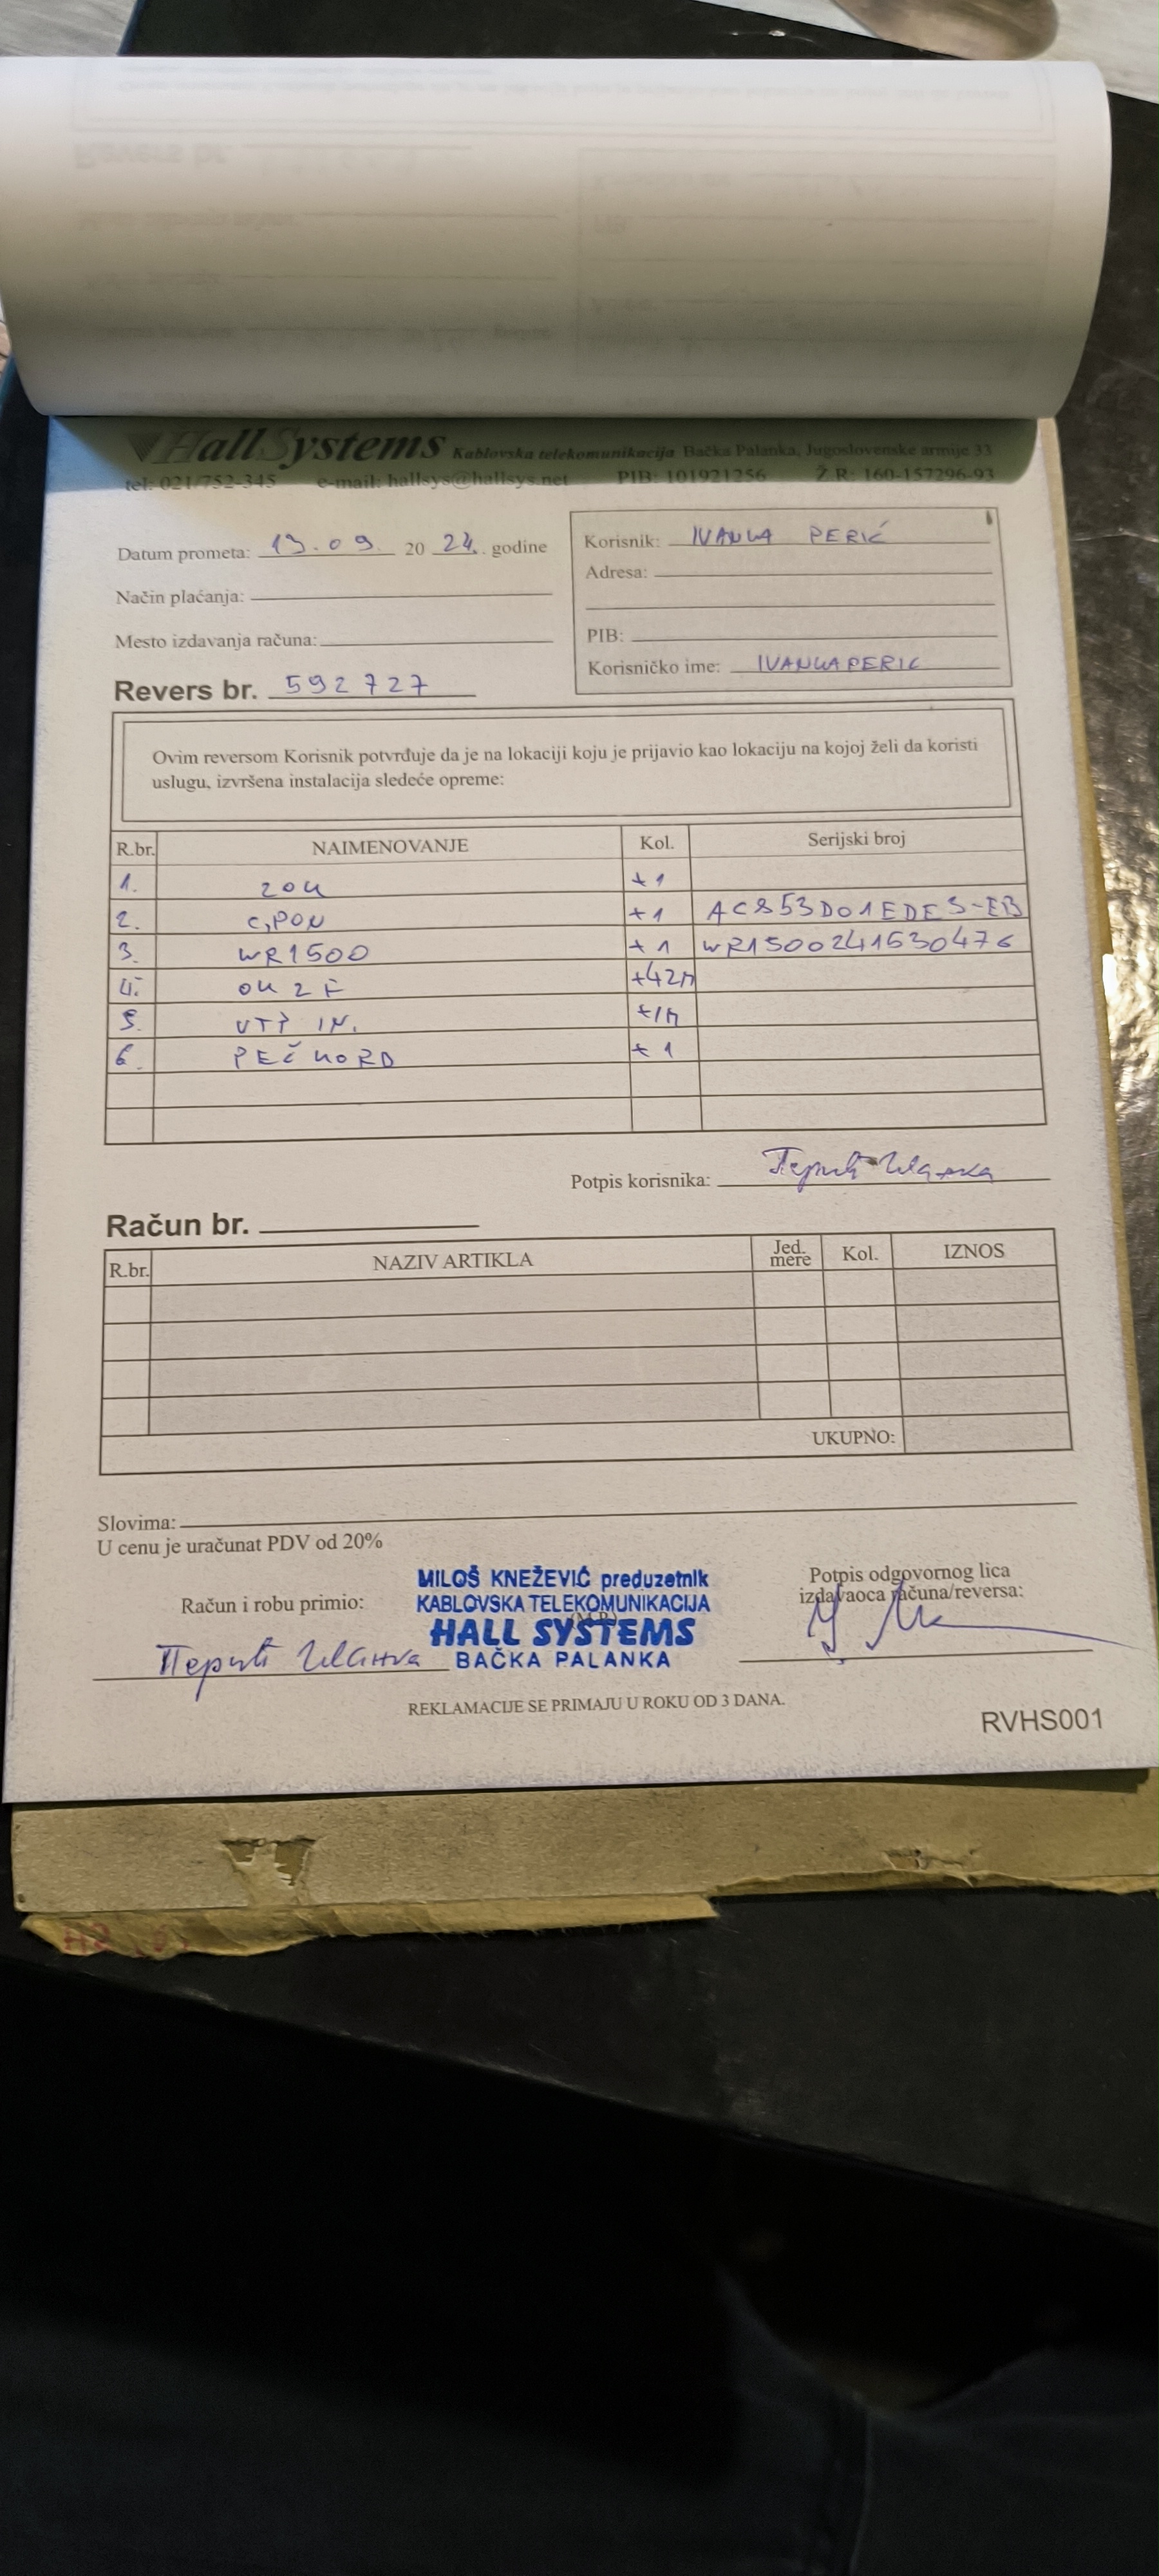 HallSystems Kablovska telekomunikacija Bačka Palanka, Jugoslovenske armije 33
tel: 021/752-345 e-mail: hallsys@hallsys.net PIB: 101921256 Ž.R: 160-157296-93
Datum prometa: 13.09. 20 24. godine
Korisnik: IVANKA PERIĆ
Adresa:
Način plaćanja:
Mesto izdavanja računa:
PIB:
Korisničko ime: IVANKAPERIC
Revers br. 592727
Ovim reversom Korisnik potvrđuje da je na lokaciji koju je prijavio kao lokaciju na kojoj želi da koristi
uslugu, izvršena instalacija sledeće opreme:
R.br. NAIMENOVANJE Kol. Serijski broj
1. ZOK +1
2. GPON +1 AC853D01EDE5-EB
3. WR1500 +1 WR1500241530476
4. OK 2F +42M
5. UTP IN. +1M
6. +1
Potpis korisnika: Перић Иванка
Račun br.
R.br. NAZIV ARTIKLA Jed. mere Kol. IZNOS
UKUPNO:
Slovima:
U cenu je uračunat PDV od 20%
Račun i robu primio:
Перић Иванка
MILOŠ KNEŽEVIĆ preduzetnik
KABLOVSKA TELEKOMUNIKACIJA
HALL SYSTEMS
BAČKA PALANKA
Potpis odgovornog lica
izdavaoca računa/reversa:
REKLAMACIJE SE PRIMAJU U ROKU OD 3 DANA.
RVHS001